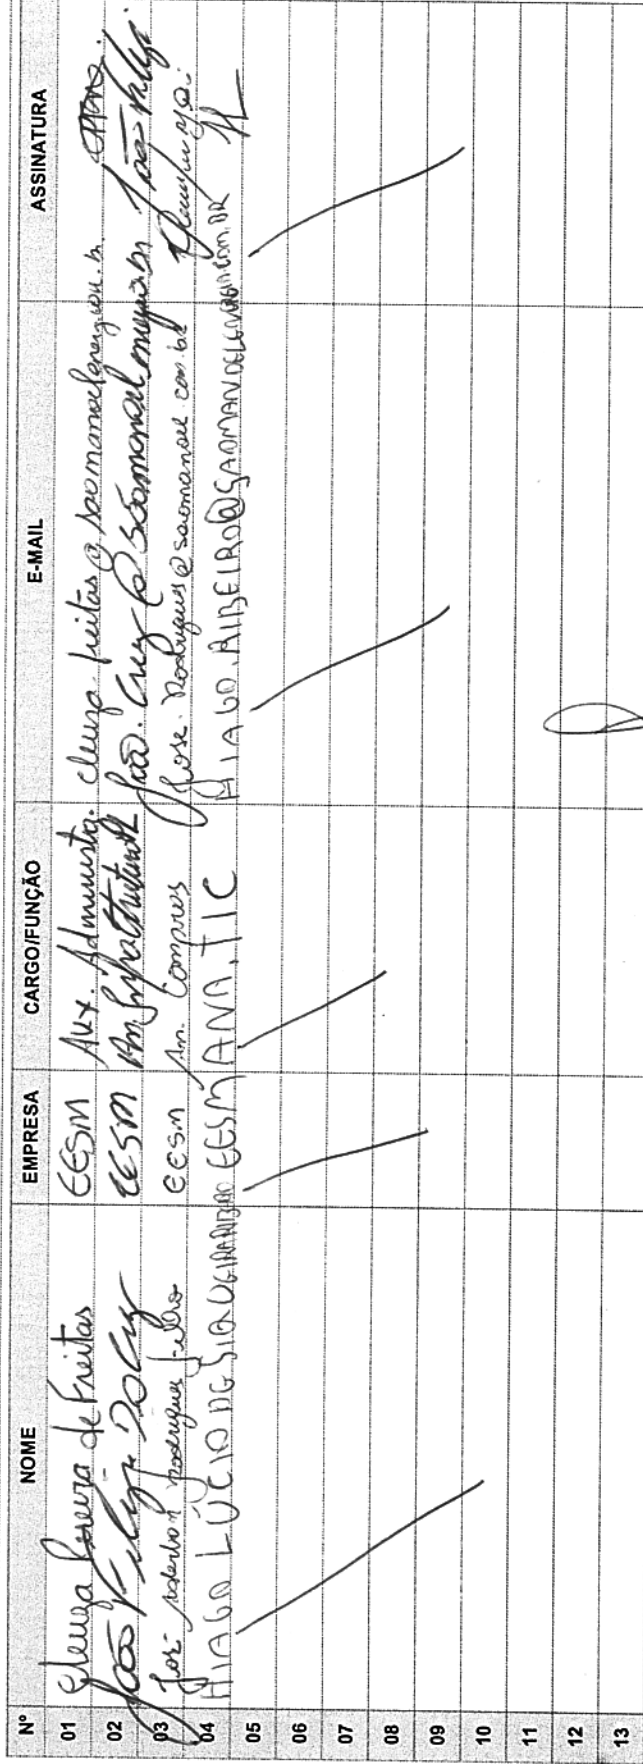 Nº NOME EMPRESA CARGO/FUNÇÃO E-MAIL ASSINATURA
01 Cleuza Pereira de Freitas EESM Aux. Administ. cleuza.freitas@saomanoelenergia.com.br
02 João Felipe da Cruz EESM An. Infraestrutura João.Cruz@saomanoel João Felipe
03 José Rodrigues Filho EESM An. Compras Jose.Rodrigues@saomanoel.com.br
04 HIAGO LÚCIO DE SIQUEIRA RIBEIRO EESM ANA. TIC HIAGO.RIBEIRO@SAOMANOELENERGIA.COM.BR HL
05
06
07
08
09
10
11
12
13